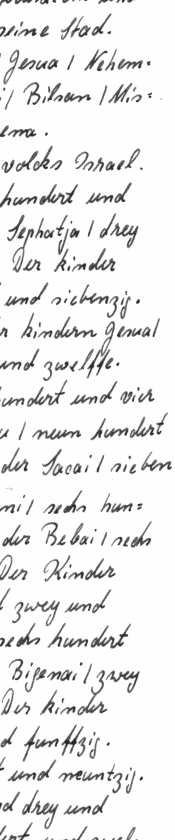 seine Stad.
Jesua / Nehem=
i / Bilsan / Mis=
ema.
volcks Israel.
hundert und
Sephatja / drey
Der kinder
und siebenzig.
r kindern Jesua /
und zwelffe.
hundert und vier
u / neun hundert
der Sacai / sieben
ni / sechs hun=
der Bebai / sechs
Der Kinder
zwey und
sechs hundert
Bigenai / zwey
Der kinder
d funffzig.
und neuntzig.
nd drey und